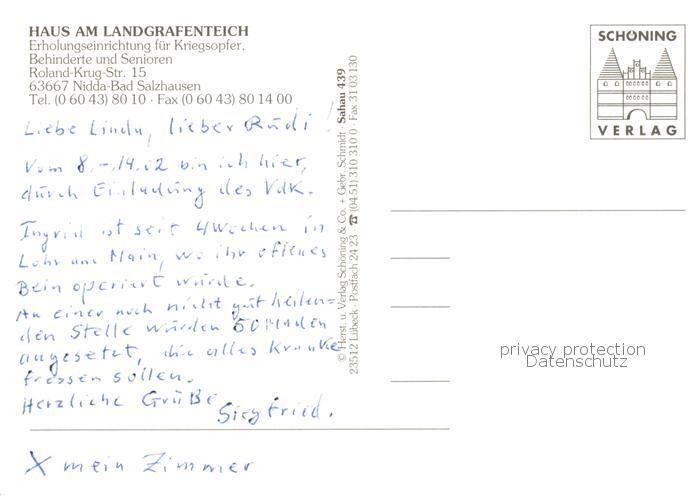 HAUS AM LANDGRAFENTEICH
Erholungseinrichtung für Kriegsopfer,
Behinderte und Senioren
Roland-Krug-Str. 15
63667 Nidda-Bad Salzhausen
Tel. (0 60 43) 80 10 · Fax (0 60 43) 80 14 00
Liebe Linda, lieber Rudi!
Vom 8.-14.12 bin ich hier,
durch Einladung des VdK.
Ingrid ist seit 4 Wochen in
Lohr am Main, wo ihr offenes
Bein operiert wurde.
An einer noch nicht gut heilen=
den Stelle wurden 50 Maden
angesetzt, die alles Kranke
fressen sollen.
Herzliche Grüße
Siegfried.
X mein Zimmer
© Herst. u. Verlag Schöning & Co. + Gebr. Schmidt · Sahau 439
23512 Lübeck · Postfach 24 23 · ☎ (04 51) 310 310 0 · Fax 31 03 130
SCHÖNING
VERLAG
privacy protection
Datenschutz